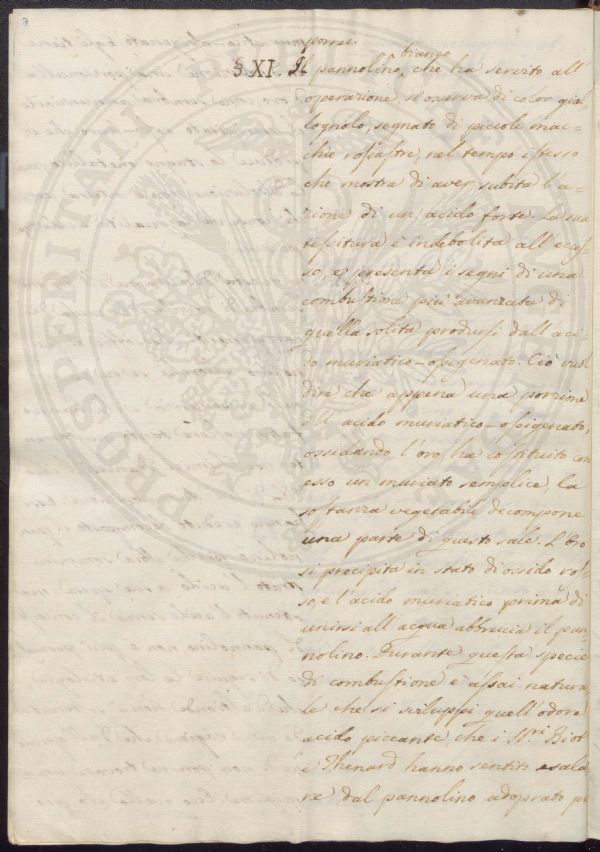 8
porrei.
bianco
§ XI. Il pannolino che ha servito all'
operazione, si osserva di color gial
lognolo, segnato di piccole mac=
chie rossastre, nel tempo istesso
che mostra di aver subita l'a=
zione di un' acido forte. La sua
tessitura è indebolita all' ecces=
so, e presenta i segni di una
combustione più avanzata di
quella solita prodursi dall' aci=
do muriatico-ossigenato. Ciò vuol
dire che appena una porzione
dell' acido muriatico-ossigenato,
ossidando l'oro, ha costituito con
esso un muriato semplice la
sostanza vegetabile decompone
una parte di questo sale. L'Oro
si precipita in stato di ossido ros=
so, e l'acido muriatico prima di
unirsi all' acqua abbrucia il pan
nolino. Durante questa specie
di combustione è assai natura
le che si sviluppi quell' odore
acido piccante, che i Sri. Biot
e Thenard hanno sentito esala
re dal pannolino adoprato p
PROSPERITATI PUBLICAE